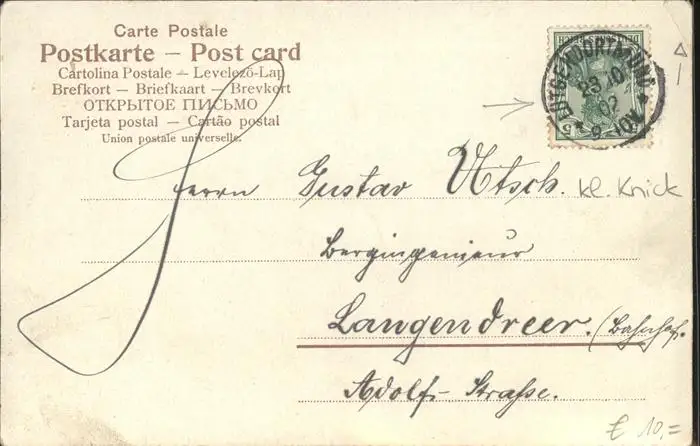 Carte Postale
Postkarte – Post card
Cartolina Postale – Levelező-Lap
Brefkort – Briefkaart – Brevkort
ОТКРЫТОЕ ПИСЬМО
Tarjeta postal – Cartão postal
Union postale universelle.
LÜTGENDORTMUND
23.10
02
9-10V.
5
Herrn Gustav Utsch.
kl. Knick
Bergingenieur
Langendreer. (Bahnhof.
Adolf-Strasse.
€ 10,=